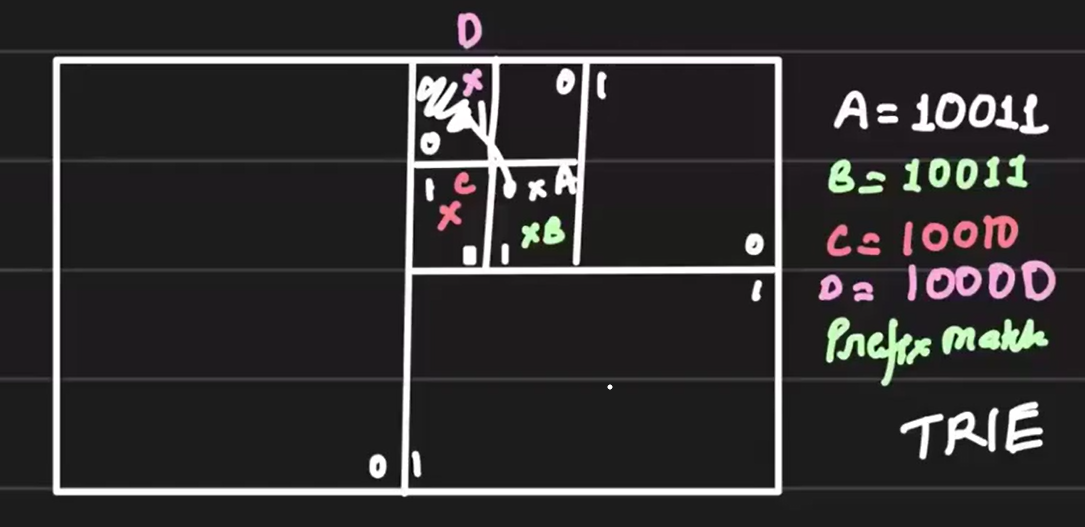 D
0 1
0
1 C A
B
0 1
0
1
0 1
A = 10011
B = 10011
C = 10010
D = 10000
Prefix match
TRIE